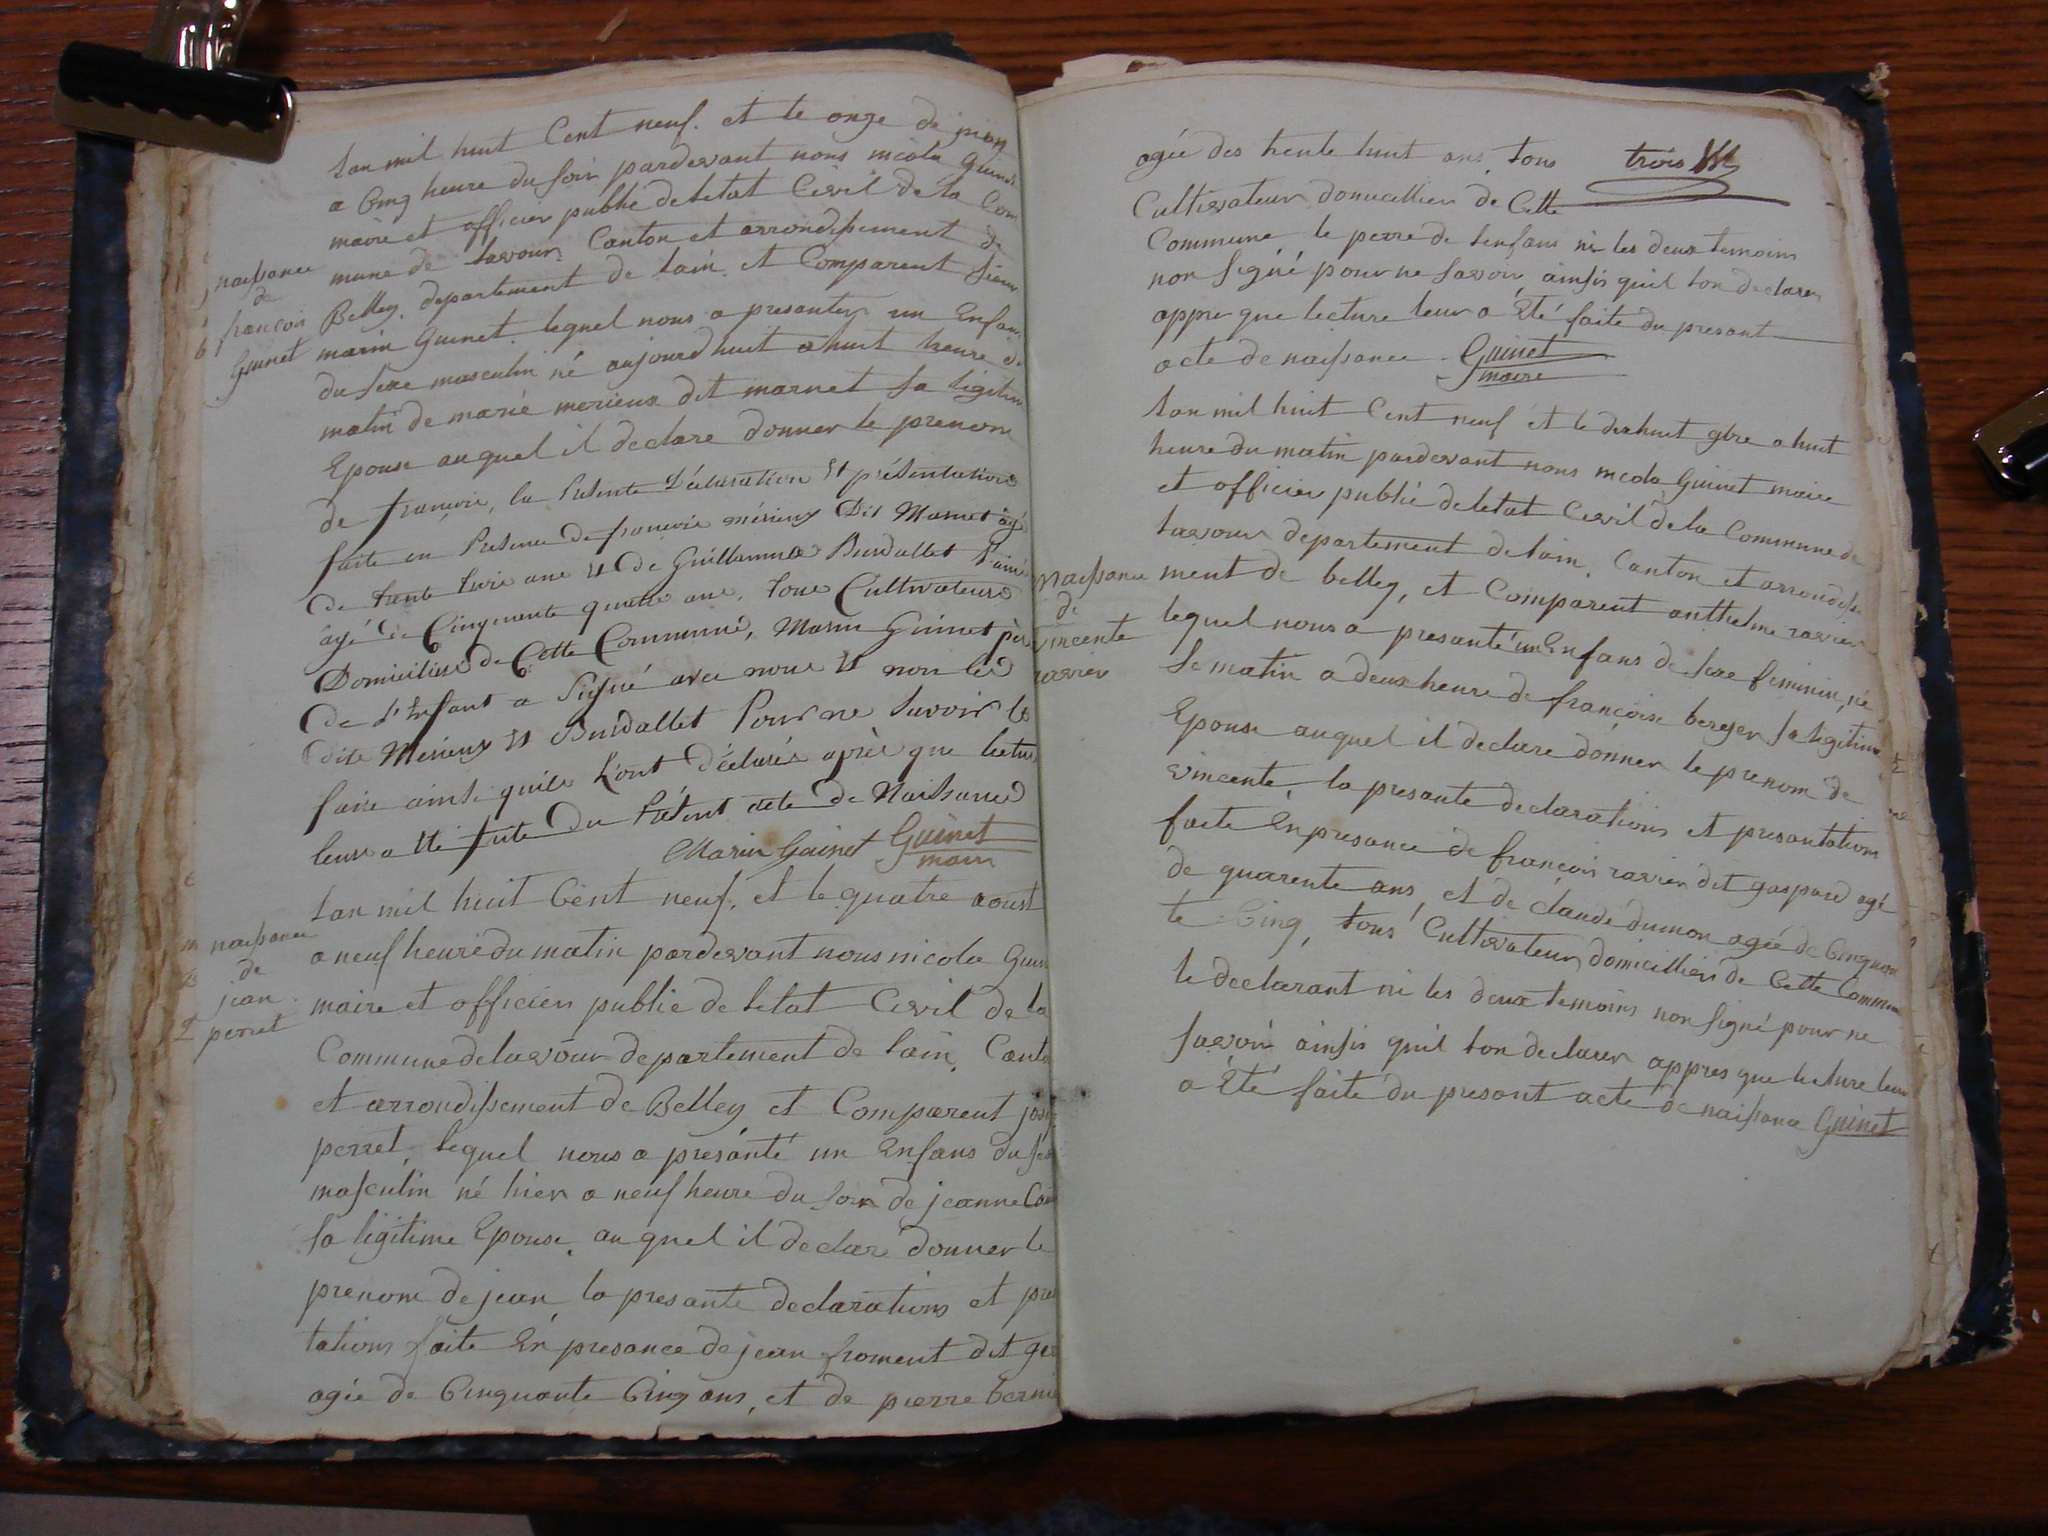 Lan mil huit Cent neuf. et le onze de juin
a Cinq heure du soir pardevant nous nicola Guinet
maire et officier publié de letat Civil de la Com
mune de Lavour Canton et arrondissement de
Belley. departement de Lain. et Comparent sieur
marin Guinet. lequel nous a presanter un Enfan
du sexe masculin né aujourdhuit a huit heure du
matin de marie merieux dit marnet sa legitim
Epouse auquel il declare donner le prenom
de françois, la présente Déclaration et présentation
faite en Présence de françois mérieux Dit Marnet âgé
de trente trois ans et de Guillaume Burdallet l'ainé
âgé de Cinquante quatre ans. tous Cultivateurs
Domiciliés de Cette Commune, Marin Guinet père
de l'Enfant a Signé avec nous et non les
dits Mérieux et Burdallet Pour ne Savoir le
faire ainsi qu'ils L'ont Déclarés après que lectur
leurs a été faite Du Présent acte de Naissance
Marin Guinet Guinet
maire
naissance
de
françois
Guinet
Lan mil huit Cent neuf. et le quatre aoust
a neuf heure du matin pardevant nous nicola Guin
maire et officier publié de letat Civil de la
Commune de lavour departement de Lain. Canto
et arrondissement de Belley et Comparent jose
perret, lequel nous a présanté un Enfans du sex
masculin né hier a neuf heure du soir de jeanne
sa legitime Epouse. auquel il declare donner le
prenom de jean, la presante declarations et pre
tations faite En presance de jean froment dit
agée de Cinquante Cinq ans, et de pierre berni
naissance
de
jean
perret
agée des trente huit ans, tous trois
Cultivateur domicillier de Cette
Commune, le perre de lenfans ni les deux temoins
non signé pour ne savoir, ainsis quil lon declarer
appre que lecture leur a Eté faite du presant
acte de naissance. Guinet
maire
Lan mil huit Cent neuf et le dixhuit 9bre a huit
heure du matin pardevant nous nicola Guinet maire
et officier publié de letat Civil de la Commune de
Lavour departement de Lain. Canton et arrondisse
ment de belley, et Comparent anthelme ravier
lequel nous a presanté un Enfans de sexe feminin, né
le matin a deux heure de françoise berger sa legitime
Epouse auquel il declare donner le prenom de
vincente, la presante declarations et presantations
faite En presance de françois ravier dit gaspard agé
de quarente ans, et de claude dumon agée de Cinquan
te Cinq, tous Cultivateur domicillier de Cette Commun
le declarant ni les deux temoins non signé pour ne
savoir ainsis quil lon declarer appres que lecture leur
a Eté faite du presant acte de naissance Guinet
naissance
de
vincente
ravier